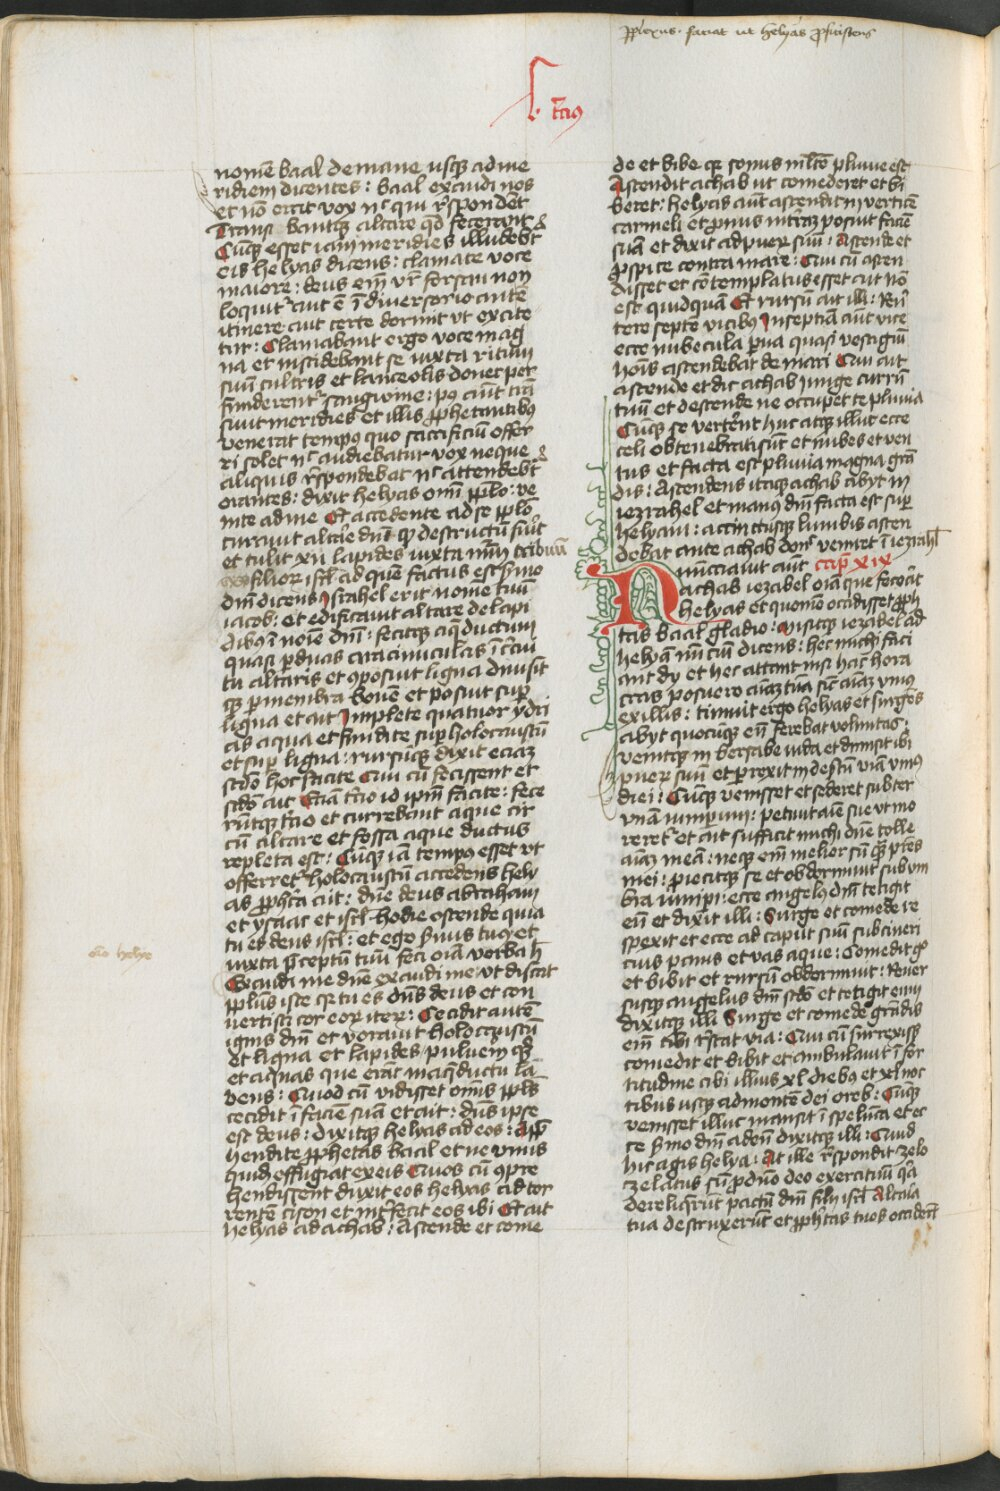 ꝓplexus . faciat ut helyas ꝓficiscens
l. tcius
nomē baal de mane usqꝫ ad me
ridiem dicentes : baal exaudi nos
et nō erat vox nͨ qui rñspondēt
Transi bantqꝫ altare qd fecerant
Cūqꝫ esset iam meridies illudebāt
eis helyas dicens : clamate voce
maiore : deus em̄ vr̄ forsan non
loquit᷑ aut ē ī diversorio aut ē
itinere aut certe dormit ut excite
tur : Clamabant ergo voce mag
na et insidebant se iuxta ritum
suū cultris et lanceolis donec per
funderent᷑ sanguine : pꝰ aūt trā
siuit meridies et illis ꝓphetantibꝰ
venerat tempꝰ quo sacrificiū offer
ri solet nͨ audiebatur vox neque
aliquis rn̄spondebat nͨ attendebāt
orantes : dixit helyas om̄i ppło : ve
nite ad me Et accedente ad se ppło
curauit altare dn̄i qͩ destructū fuāt
et tulit xii lapides iuxta nūm tribuū
filior isrl ad quē factus est s̄mo
dn̄i dicens Israhel erit nomē tuū
iacob : et edificauit altare de lapi
dibꝰ ī noīe dn̄i : fecitqꝫ aq̄ ductum
quasi ꝑ duas aratiunculas ī circui
tu altaris et ꝯposuit ligna diuisit
qꝫ ꝑ membra bouē et posuit supͬ
ligna et ait Implete quatuor ydri
as aqua et fundite supͬ holocaustū
et supͬ ligna : rursūqꝫ dixit eciaꝫ
scdo hoc facite Qui cū fecissent et
scdo ait Eciā tcio id ipm̄ facite : fece
rūtqꝫ tcio et currebant aque cir
cū altare et fossa aque ductus
repleta est : Cūqꝫ iā tempꝰ esset ut
offerret᷑ holocaustū accedens hely
as ꝓphēta ait : dn̄e deus abraham
et ysaac et isrl hodie ostende quia
tu es deus isrl : et ego s̄uus tuꝰ et
iuxta p̄ceptū tuū feci oīa verba h̄
Exaudi me dn̄e exaudi me ut discat
pplus iste qꝛ tu es dn̄s deus et con
uertisti cor eoꝝ iteꝝ : Cecidit autē
ignis dn̄i et vorauit holocaustū
et ligna et lapides puluerē qꝫ
et aquas que erāt in aq̄ductu lā
bens : Quod cū vidisset omīs pplus
cecidit ī faciē suā et ait : dn̄s ipse
est deus : dixitqꝫ helyas ad eos : App̄
hendite ꝓphetas baal et ne vnus
quidē effugiat ex eis Quos cū ꝯpre
hendissent duxit eos helyas ad tor
rentē cison et int̄fecit eos ibi Et ait
helyas ad achab : Ascende et come
de et bibe qꝛ sonus mlte pluuie est
Ascendit achab ut comederet et bi
beret : helyas aūt ascendit in verticē
carmeli et ꝓnus in terrā posuit faciē
suā et dixit ad pueꝝ suū : Ascende et
ꝓspice contra mare : Qui cū ascen
disset et cōtemplatus esset ait nō
est quidquā Et rursū ait illi : Reu̕
tere septē vicibꝰ In septīa aūt vice
ecce nubecula ꝑua quasi vestigiū
hoīs ascendebat de mari Qui ait
ascende et dic achab iunge currū
tuū et descende ne occupet te pluuia
Cūqꝫ se verteret huc atqꝫ illuc ecce
celi obtenebrati sūt et nubes et ven
tus et facta est pluuia magna grā
dis : Ascendens itaqꝫ achab abyt in
iezrahel et manus dn̄i facta est supͬ
helyam : accinctusqꝫ lumbis ascen
debat ante achab donͨ veniret ī iezrahł
Nunciauit aūt capͫ xix
achab iezabel oīa que fecerat
helyas et quomō occidisset ꝓphe
tas baal gladio : Misitqꝫ iezabel ad
helyā nūciū dicens : hec michi faci
ant dy et hec addant nisi hāc hora
cras posuero aīaꝫ tuā sic aīaꝫ vniꝰ
ex illis : timuit ergo helyas et surgēs
abyt quocūqꝫ eū ferebat voluntas :
venitqꝫ in bersabe iuda et dimisit ibi
pueꝝ suū et ꝑrexit in desertū viā vniꝰ
diei : Cūqꝫ venisset et sederet subter
vnā iuniperū : petiuit aīe sue ut mo
reret᷑ et ait sufficit michi dn̄e tolle
aīaꝫ meā : neqꝫ em̄ melior sū qͣꝫ pr̄es
mei : ꝓiecitqꝫ se et obdormiuit sub vm
bra iuniperi : ecce angelꝰ dn̄i tetigit
eū et dixit illi : Surge et comede re
spexit et ecce ad caput suū subcineri
cius panis et vas aque : Comedit gͦ
et bibit et rursū obdormiuit : Reuer
susqꝫ angelus dn̄i scdo et tetigit eum
dixitqꝫ illi Surge et comede grādis
em̄ tibi restat via : Qui cū surrexisꝫ
comedit et bibit et ambulauit ī for
titudine cibi illius xl diebꝰ et xl noc
tibus usqꝫ ad montē dei oreb : Cūqꝫ
venisset illuc mansit ī spelūca et ec
ce s̄mo dn̄i ad eū dixitqꝫ illi : Quid
hic agis helya : At ille rn̄spondit zelo
zelatus sū ꝓ dn̄o deo exercituū qꝛ
dereliqrūt pactū dn̄i filij isrl Altaria
tua destruxerūt et ꝓphetas tuos occiderūt